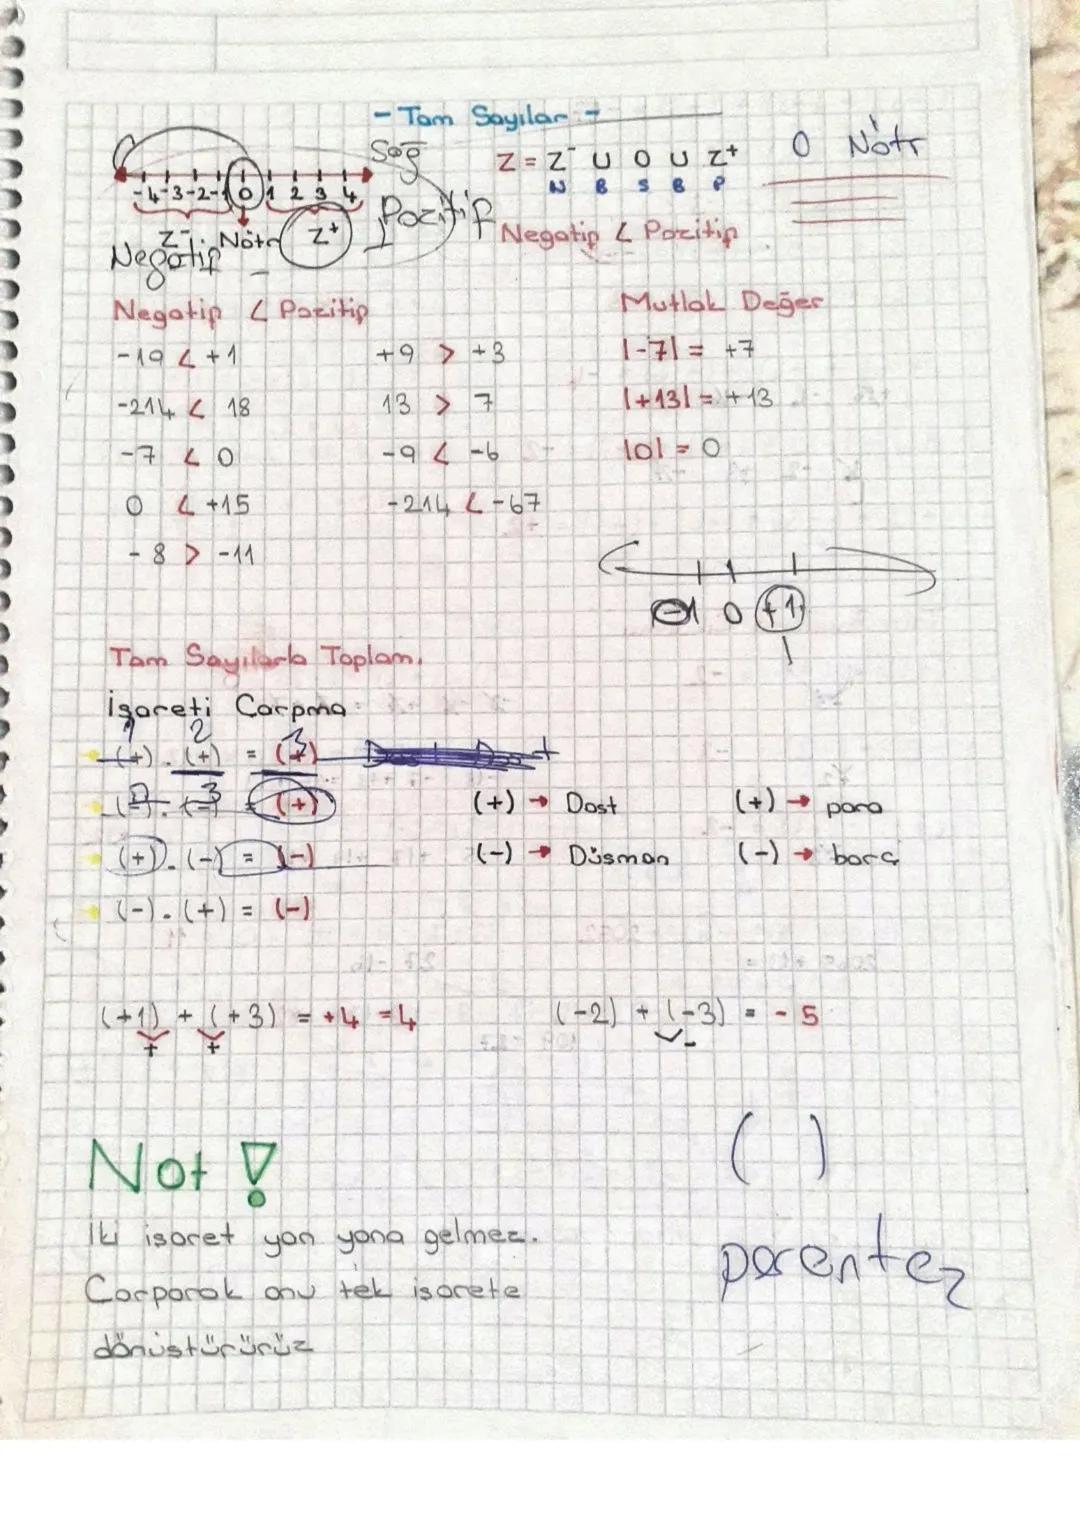 - Tam Sayılar -
Sağ
Z = Z⁻ U 0 U Z⁺
N B S B P
0 Nötr
-4 -3 -2 -1 0 1 2 3 4
Z⁻ Nötr Z⁺ Pozitif
Negatif
Negatip < Pozitip
Negatip < Pozitip
-19 < +1
-214 < 18
-7 < 0
0 < +15
- 8 > -11
+9 > +3
13 > 7
-9 < -6
-214 < -67
Mutlak Değer
|-7| = +7
|+13| = +13
|0| = 0
-1 0 +1
Tam Sayılarla Toplam.
İşareti Çarpma
(+) . (+) = (+)
(-) . (-) = (+)
(+) . (-) = (-)
(-) . (+) = (-)
(+) → Dost
(-) → Düşman
(+) → para
(-) → borç
(+1) + (+3) = +4 = 4
+ +
(-2) + (-3) = - 5
-
Not !
İki işaret yan yana gelmez.
Çarparak onu tek işarete
dönüştürürüz
( )
parentez